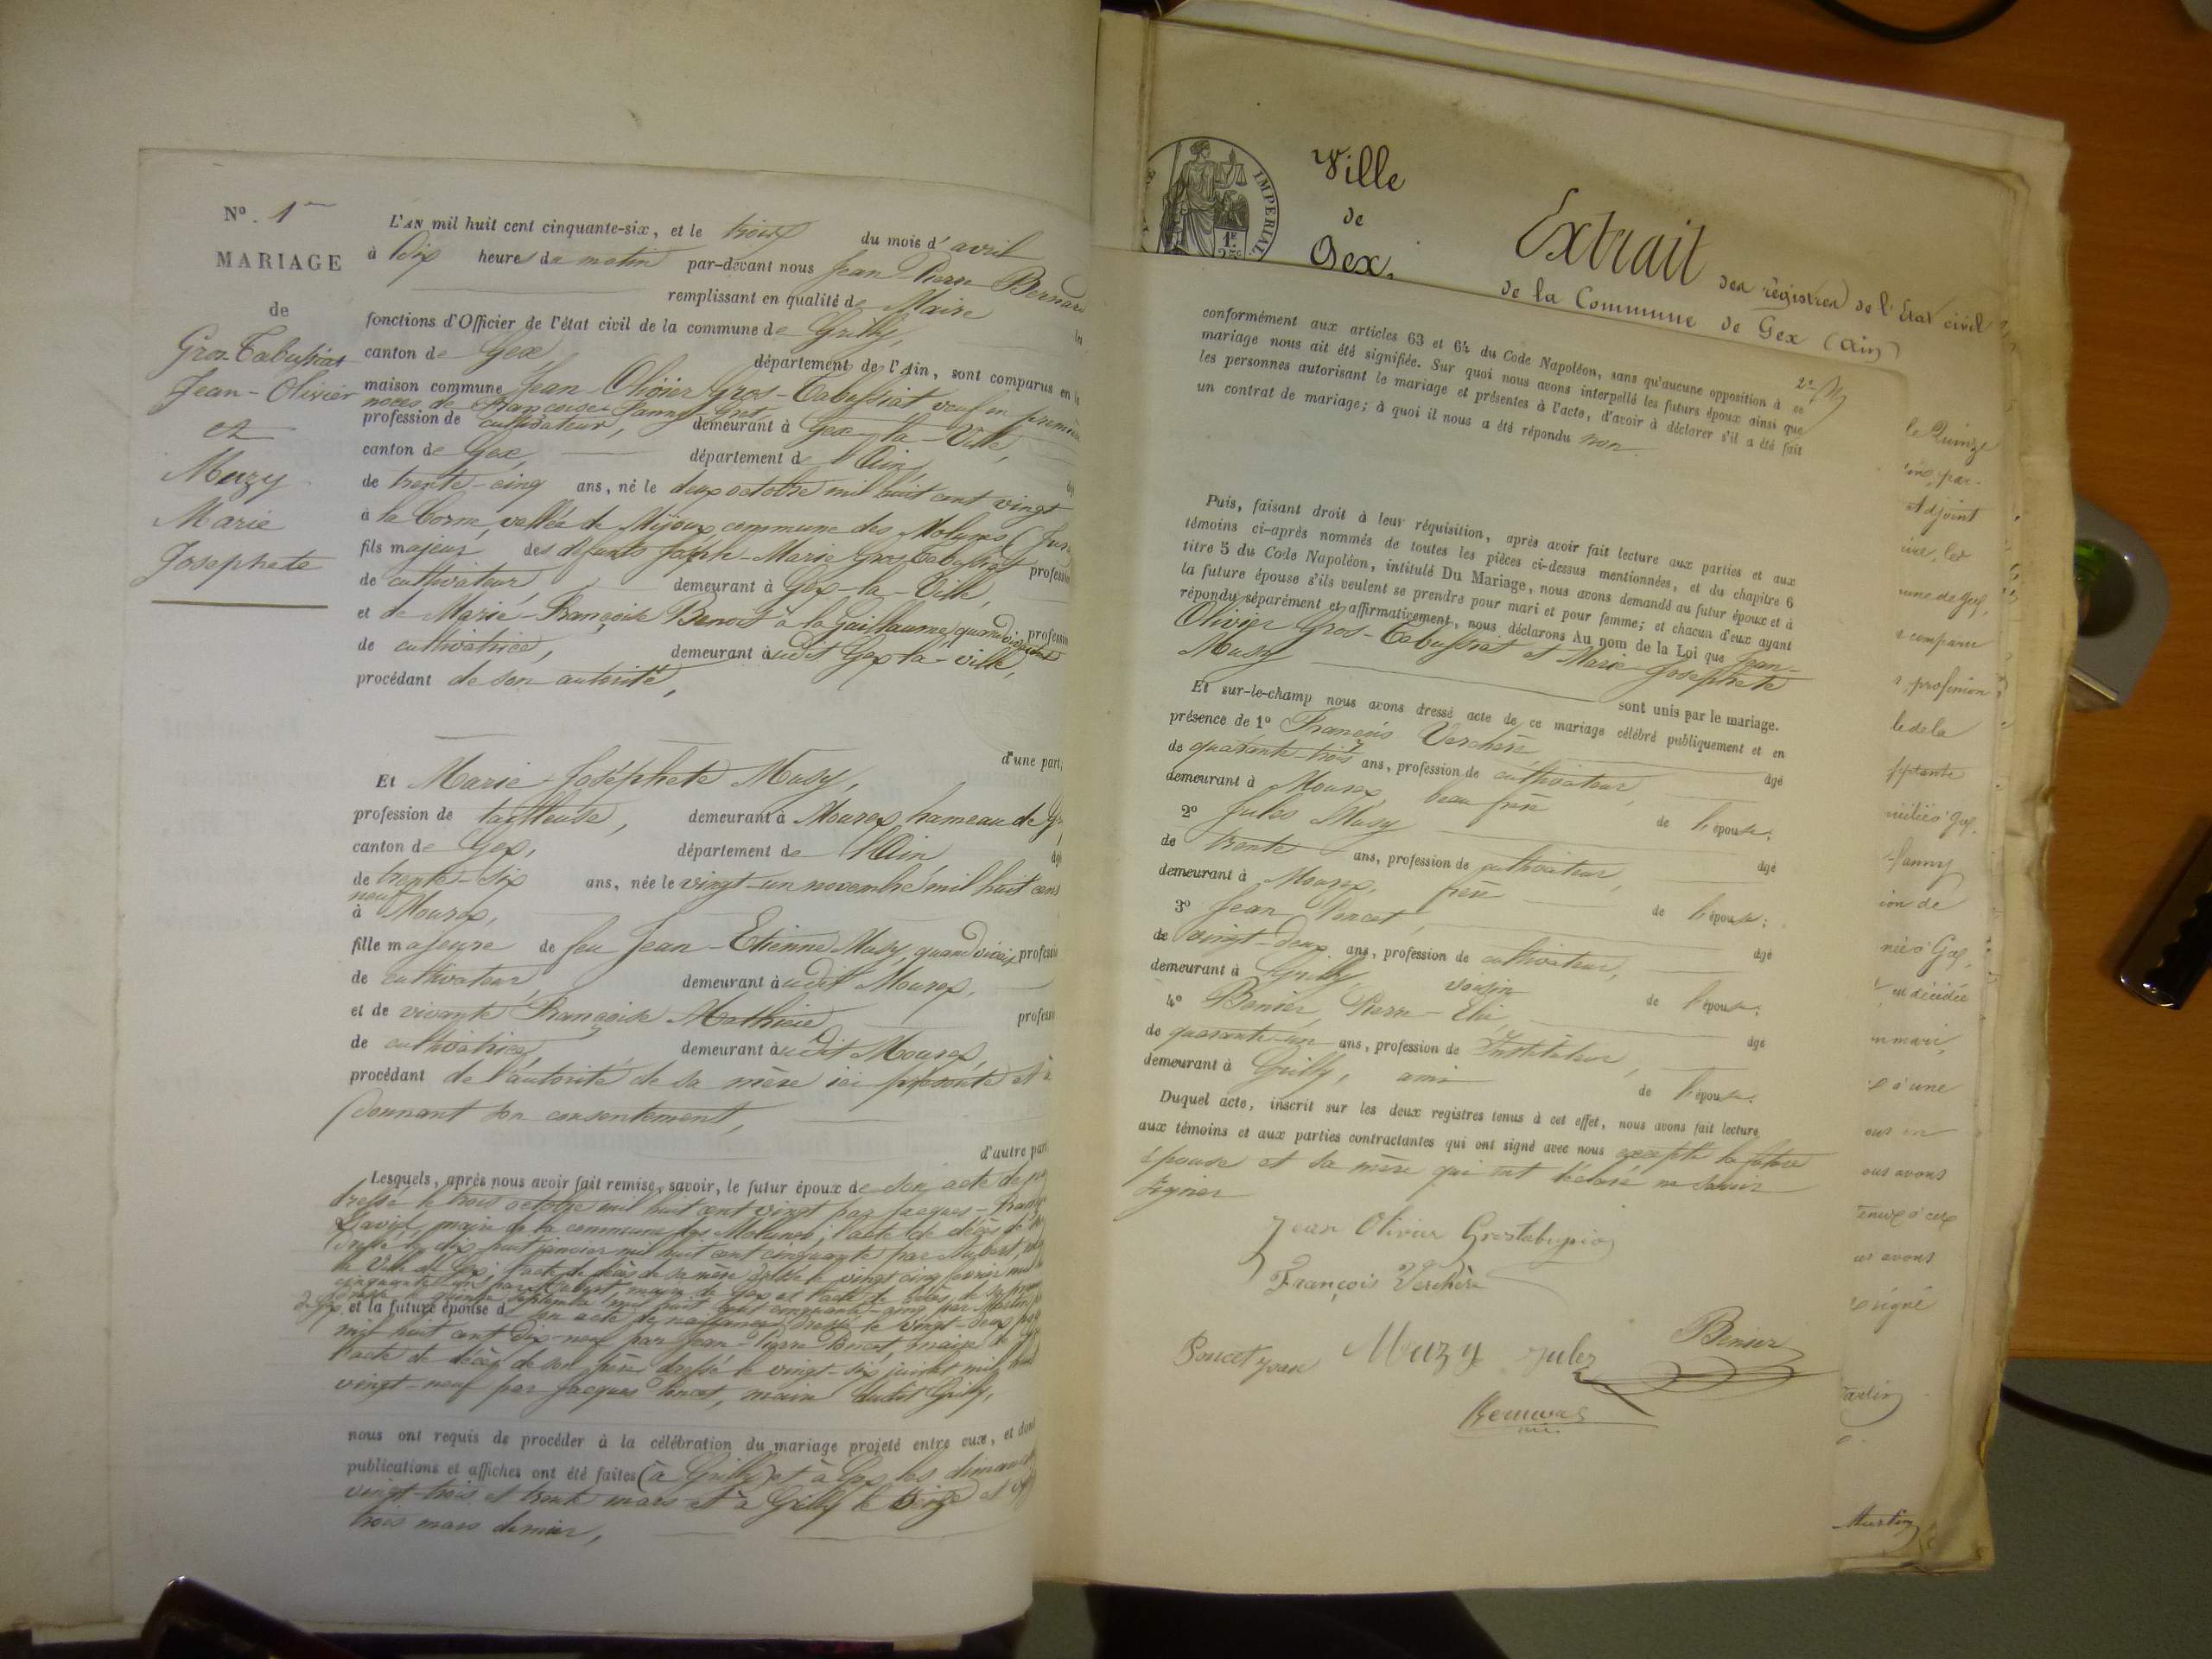 N° 1er
MARIAGE
de
Gros-Tabussiat
Jean-Olivier
et
Muzy
Marie
Josephete
L'AN mil huit cent cinquante-six, et le trois du mois d'avril
à dix heures du matin par-devant nous Jean Pierre Bernard
remplissant en qualité de Maire les
fonctions d'Officier de l'état civil de la commune de Grilly,
canton de Gex, département de l'Ain, sont comparus en la
maison commune Jean Olivier Gros-Tabussiat veuf en premières
noces de Françoise Fanny Gret,
profession de cultivateur, demeurant à Gex-la-Ville,
canton de Gex, département de l'Ain, âgé
de trente-cinq ans, né le deux octobre mil huit cent vingt
à la Corne, vallée de Mijoux, commune des Molunes (Jura
fils majeur des défunts Joseph-Marie Gros Tabussiat profession
de cultivateur, demeurant à Gex-la-Ville,
et de Marie-Françoise Benoit à la Gaillaume, quand vivait profession
de cultivatrice, demeurant audit Gex-la-ville,
procédant de son autorité,
d'une part,
Et Marie-Joséphete Musy,
profession de tailleuse, demeurant à Mourex, hameau de G
canton de Gex, département de l'Ain, âgé
de trente-six ans, née le vingt-un novembre mil huit cent
neuf
à Mourex,
fille majeure de feu Jean-Etienne Musy, quand vivait, profession
de cultivateur, demeurant audit Mourex,
et de vivante Françoise Mathieu profession
de cultivatrice, demeurant audit Mourex,
procédant de l'autorité de sa mère ici présente et à
donnant son consentement,
d'autre part
Lesquels, après nous avoir fait remise, savoir, le futur époux de son acte de
dressé le trois octobre mil huit cent vingt par Jacques-François
David, maire de la commune des Molunes; l'acte de décès de
dressé le dix huit janvier mil huit cent cinquante par Aubert,
la Ville de Gex; l'acte de décès de sa mère dressé le vingt cinq février mil
cinquante par maire de Gex et l'acte de décès de sa
dressé le quinze septembre mil huit cent cinquante-cinq par Martin
de Gex, et la future épouse d son acte de naissance dressé le vingt-deux
mil huit cent dix-neuf par Jean-Pierre Poncet, maire de
l'acte de décès de son père dressé le vingt-six juillet mil huit
vingt-neuf par Jacques Poncet, maire dudit Grilly,
nous ont requis de procéder à la célébration du mariage projeté entre eux, et dont
publications et affiches ont été faites (à Grilly) et à Gex les dimanches
vingt-trois et trente mars et à Grilly le seize et
trois mars dernier,
Ville
de
Gex.
IMPERIAL
Extrait des registres de l'Etat civil
de la Commune de Gex (Ain)
conformément aux articles 63 et 64 du Code Napoléon, sans qu'aucune opposition à ce
mariage nous ait été signifiée. Sur quoi nous avons interpellé les futurs époux ainsi que
les personnes autorisant le mariage et présentes à l'acte, d'avoir à déclarer s'il a été fait
un contrat de mariage; à quoi il nous a été répondu non.
Puis, faisant droit à leur réquisition, après avoir fait lecture aux parties et aux
témoins ci-après nommés de toutes les pièces ci-dessus mentionnées, et du chapitre 6
titre 5 du Code Napoléon, intitulé Du Mariage, nous avons demandé au futur époux et à
la future épouse s'ils veulent se prendre pour mari et pour femme; et chacun d'eux ayant
répondu séparément et affirmativement, nous déclarons Au nom de la Loi que Jean-
Olivier Gros-Tabussiat et Marie-Josephete
Musy sont unis par le mariage.
Et sur-le-champ nous avons dressé acte de ce mariage célébré publiquement et en
présence de 1° François Verchère âgé
de quarante-trois ans, profession de cultivateur,
demeurant à Mourex, beau frère de l'épouse;
2° Jules Musy âgé
de trente ans, profession de cultivateur,
demeurant à Mourex, frère de l'épouse;
3° Jean Poncet, âgé
de vingt-deux ans, profession de cultivateur,
demeurant à Grilly, voisin de l'épouse;
4° Benier, Pierre-Elie, âgé
de quarante-un ans, profession de Instituteur,
demeurant à Grilly, ami de l'épouse.
Duquel acte, inscrit sur les deux registres tenus à cet effet, nous avons fait lecture
aux témoins et aux parties contractantes qui ont signé avec nous excepté la future
épouse et sa mère qui ont déclaré ne savoir
signer
Jean Olivier Grostabussiat
François Verchère
Poncet Jean Muzy Jules Benier
Bernard
le Quinze
par-
Adjoint
les
de Gex,
comparu
profession
le de la
septante
Gex,
fanny
ion de
née à Gex,
est décédée
mari,
à une
ous avons
avons
signé
Martin